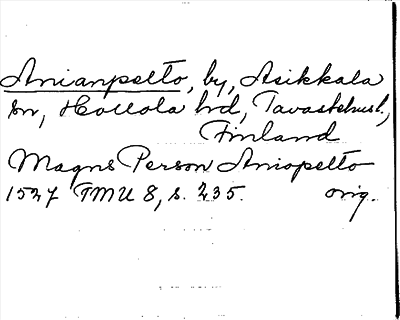 Anianpelto, by, Asikkala
sn, Hollola hrd, Tavastehusl.,
Finland
Magns Person Aniopelto
1527 TMU 8, s. 235. orig.